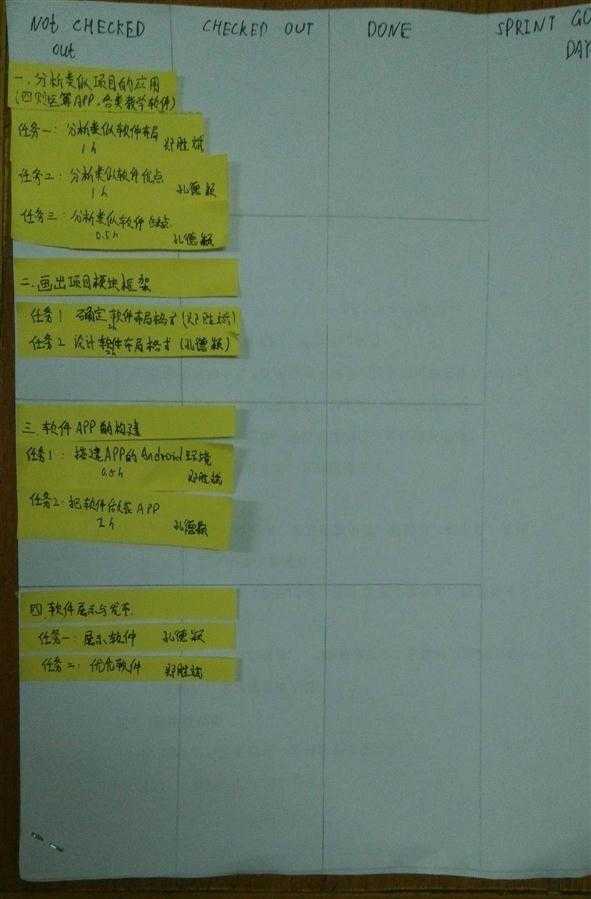 NOt CHECKED
out
CHECKED OUT
DONE
SPRINT GO
DAY
一.分析类似项目的应用
(四则运算APP,各类教学软件)
任务一:分析类似软件布局
1h 郑胜斌
任务二:分析类似软件优点
1h 孔德颖
任务三:分析类似软件缺点
0.5h 孔德颖
二.画出项目模块框架
任务1 确定软件布局格式(郑胜斌)
2h
任务2 设计软件布局格式(孔德颖)
2h
三.软件APP的构建
任务1:搭建APP的Android环境
0.5h 郑胜斌
任务2:把软件 APP
2h 孔德颖
四.软件展示与发布
任务一:展示软件 孔德颖
任务二:优化软件 郑胜斌